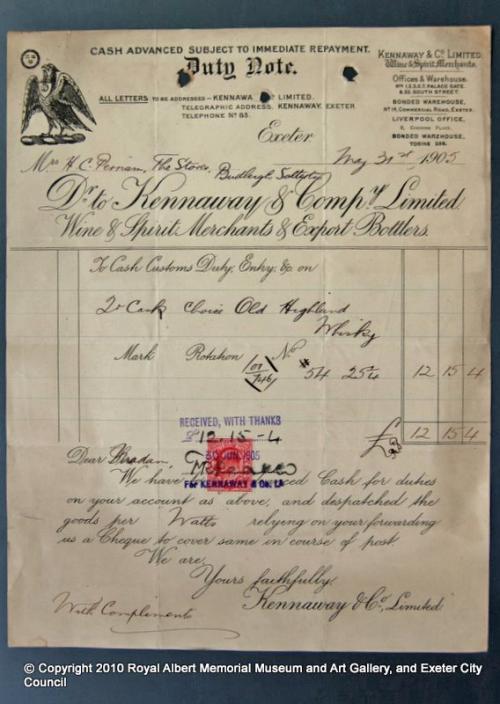 CASH ADVANCED SUBJECT TO IMMEDIATE REPAYMENT.
Duty Note.
ALL LETTERS TO BE ADDRESSED – KENNAWA LIMITED.
TELEGRAPHIC ADDRESS, KENNAWAY, EXETER
TELEPHONE No 85.
KENNAWAY & Co LIMITED
Wine & Spirit Merchants.
Offices & Warehouse.
PALACE GATE.
SOUTH STREET.
BONDED WAREHOUSE,
COMMERCIAL ROAD, EXETER.
LIVERPOOL OFFICE,
BONDED WAREHOUSE,
Exeter May 31st 1905
Mrs H C Perriam, The Stores, Budleigh Salterton
Dr to Kennaway & Compy Limited
Wine & Spirit Merchants & Export Bottlers.
To Cash Customs Duty, Entry, &c. on
Cask Choice Old Highland
Whisky
Mark Rotation No
54 254 12 15 4
RECEIVED, WITH THANKS
£12-15-4
£ 12 15 4
30 JUN 1905
For KENNAWAY & Co. Ld
Dear Madam,
We have ced Cash for duties
on your account as above, and despatched the
goods per Watts relying on your forwarding
us a Cheque to cover same in course of post.
We are,
Yours faithfully,
Kennaway & Co, Limited
With Compliments
© Copyright 2010 Royal Albert Memorial Museum and Art Gallery, and Exeter City
Council